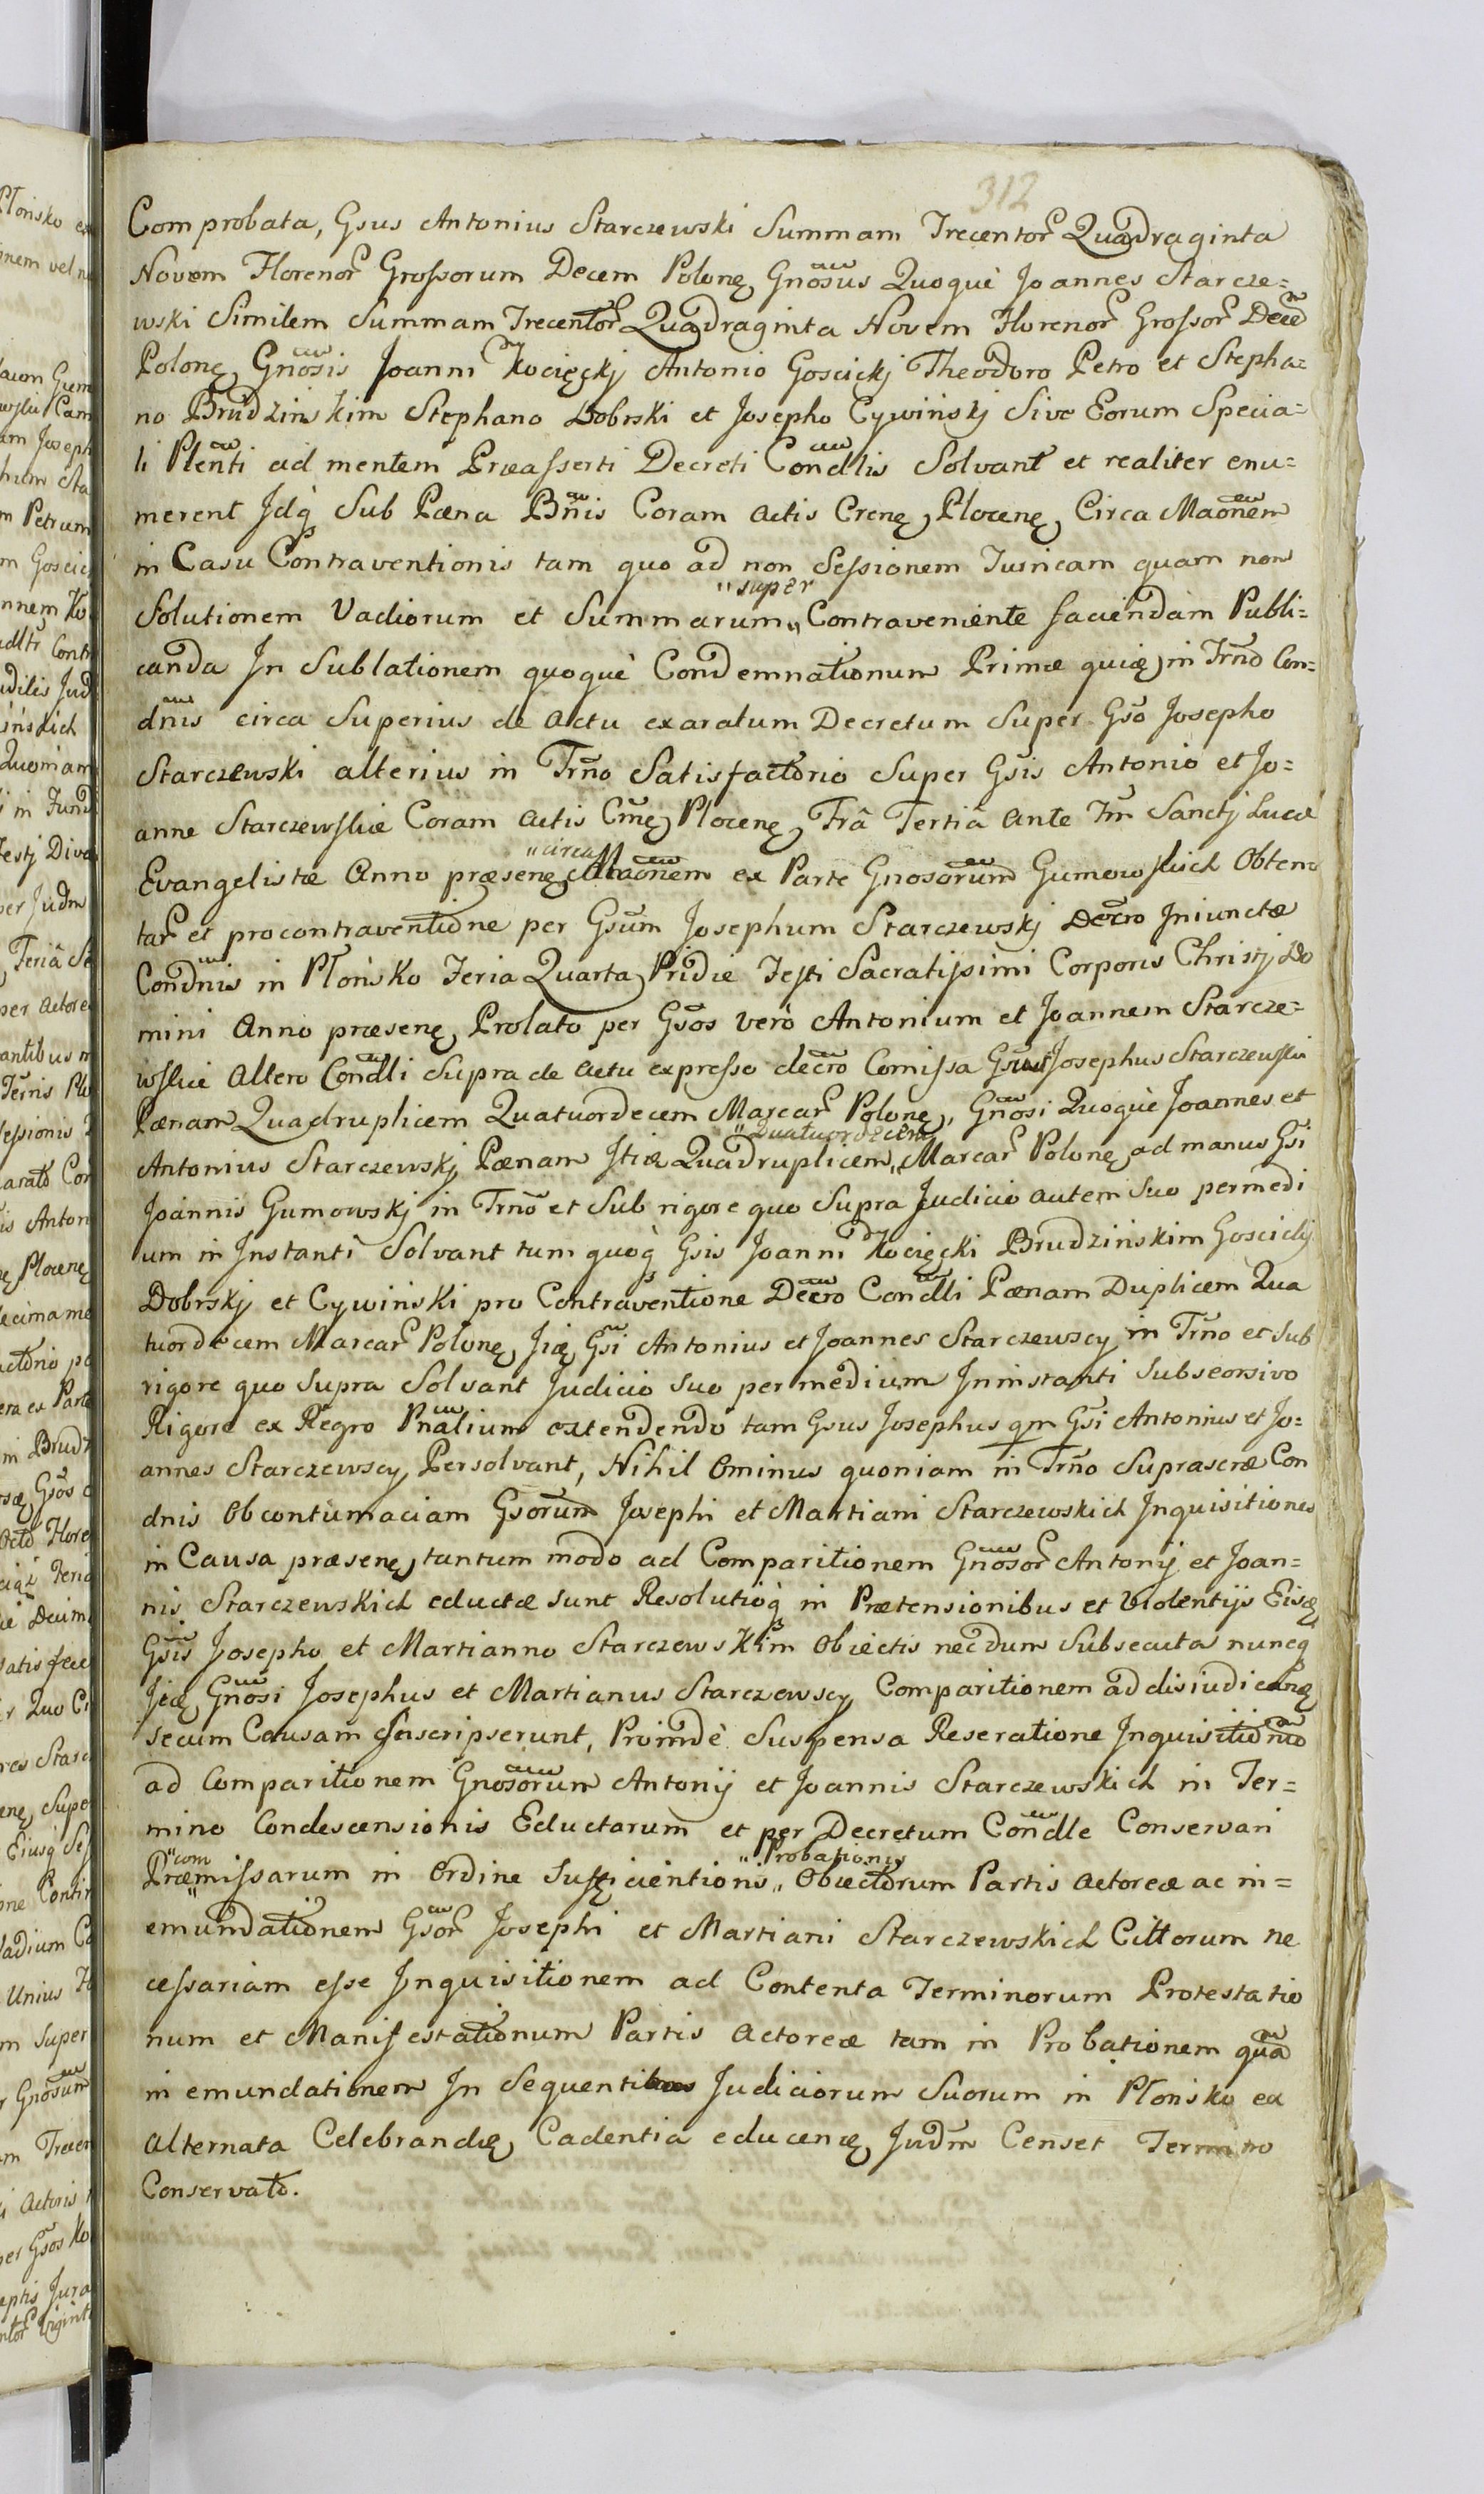 312
Comprobata, Gsus Antonius Starczewski Summam Trecentor Quadraginta
Novem Florenor Grossorum Decem Polonę Gnõsus Quoquè Joannes Starcze=
wski Similem Summam Trecentor Quadraginta Novem Florenor Grossor Decẽ
Polonę Gnõsis Joanni Kocięckj Antonio Goscickj Theodoro Petro et Stepha=
no Brudzinskim Stephano Dobrski et Josepho Cywińskj Sive Eorum Specia=
li Plẽnti ad mentem Præasserti Decreti Cõndlis Solvant et realiter enu=
merent Jdq̀ Sub Pæna Bñis Coram Actis Crenę Plocenę Circa Maõnem
in Casu Contraventionis tam quo ad non Sessionem Turricam quam non
"super
Solutionem Vadiorum et Summarum" Contraveniente faciendam Publi=
canda In Sublationem quoquè Condemnationum Primæ quię in Trñо Con=
dñis circa Superius de Actu exaratum Decretum Super Gsõ Josepho
Starczewski alterius in Trñо Satisfactorio Super Gsĩs Antonio et Jo=
anne Starczewskie Coram Actis Cr̃nę Plocenę Frâ Tertiâ Ante Fm̃ Sanctj Lucæ
"circa
Evangelistæ Anno præsenę Maõnem ex Parte Gnosorũm Gumowskich Obten
tar et procontraventione per Gsũm Josephum Starczewskj Decro Iniunctæ
Condñis in Płońsko Feria Quarta Pridie Festi Sacratissimi Corporis Christj Do
mini Anno præsenę Prolato per Gsõs verò Antonium et Joannem Starcze=
wskie Altero Condlĩ Supra de Actu expresso decrõ Comissa Gsus Josephus Starczewski
Pænam Quadruplicem Quatuordecem Marcar Polonę, Gnõsi Quoquè Joannes et
"Quatuordecem
Antonius Starczewskj Pænam Jtiæ Quadruplicem" Marcar Polonę ad manus Gsi
Joannis Gumowskj in Trñо et Sub rigore quo Supra Judicio autem Suo permedi
um in Instanti Solvant tum quoq̀ Gsis Joanni Kocięcki Brudzińskim Goscickj
Dobrskj et Cywiński pro Contraventione Decrõ Condlĩ Pænam Duplicem Qua
tuordecem Marcar Polonę Jię Gsĩ Antonius et Joannes Starczewscy in Trñо et Sub
rigore quo Supra Solvant Judicio Suo per medium Ininstanti Subseorsivo
Rigore ex Regro Pñalium extendendo tam Gsus Josephus qm Gsĩ Antonius et Jo=
annes Starczewscy Persolvant, Nihil Ominus quoniam in Trñо Suprascræ Con
dnis Obcontumaciam Gsorũm Josephi et Martiani Starczewskich Inquisitiones
in Causa præsenę tantum modo ad Comparitionem Gnõsor Antonij et Joan=
nis Starczewskich eductæ sunt Resolutioq̀ in Prætensionibus et Violentijs Eisę
Gsĩs Josepho et Martianno Starczewskim Obiectis necdum Subsecuta nuncq
Jię Gnõsi Josephus et Martianus Starczewscy Comparitionem ad disiudicanę
secum Causam Inscripserunt, Proindè Suspensa Reseratione Inquisitionũ
ad Comparitionem Gnosorũm Antonij et Joannis Starczewskich in Ter=
mino Condescensionis Eductarum et per Decretum Condlẽ Conservari
"com "Probationis
Præmissarum in Ordine Sufficientioris" Obiectorum Partis Actoreæ ac in=
emundationem Gsõr Josephi et Martiani Starczewskich Cittorum ne
cessariam esse Inquisitionem ad Contenta Terminorum Protestatio
num et Manifestationum Partis Actoreæ tam in Probationem quã
in emundationem In Sequentibus Judiciorum Suorum in Płońsko ex
Alternata Celebrandę Cadentia educenę Judm̃ Censet Termino
Conservato.